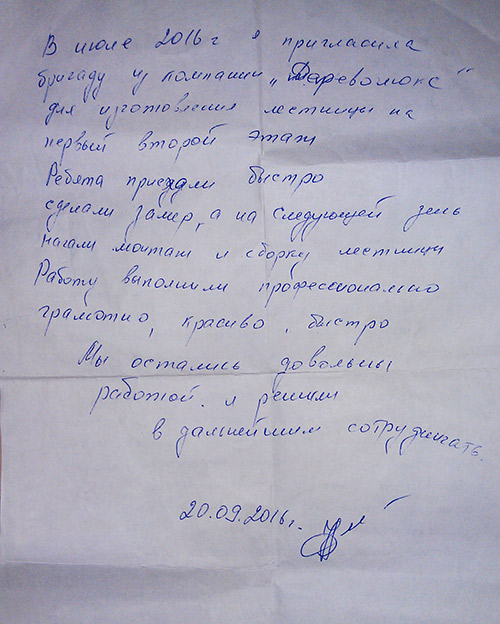 В июле 2016 г я пригласила
бригаду из компании „Дареволюкс"
для изготовления лестницы на
первый второй этаж
Ребята приедали быстро
сделали замер, а на следующей день
начали монтаж и сборку лестницы
Работу выполнили профессионально
грамотно, красиво, быстро
Мы остались довольны
работой. и решили
в дальнейшим сотруднигать.
20.09.2016 г.